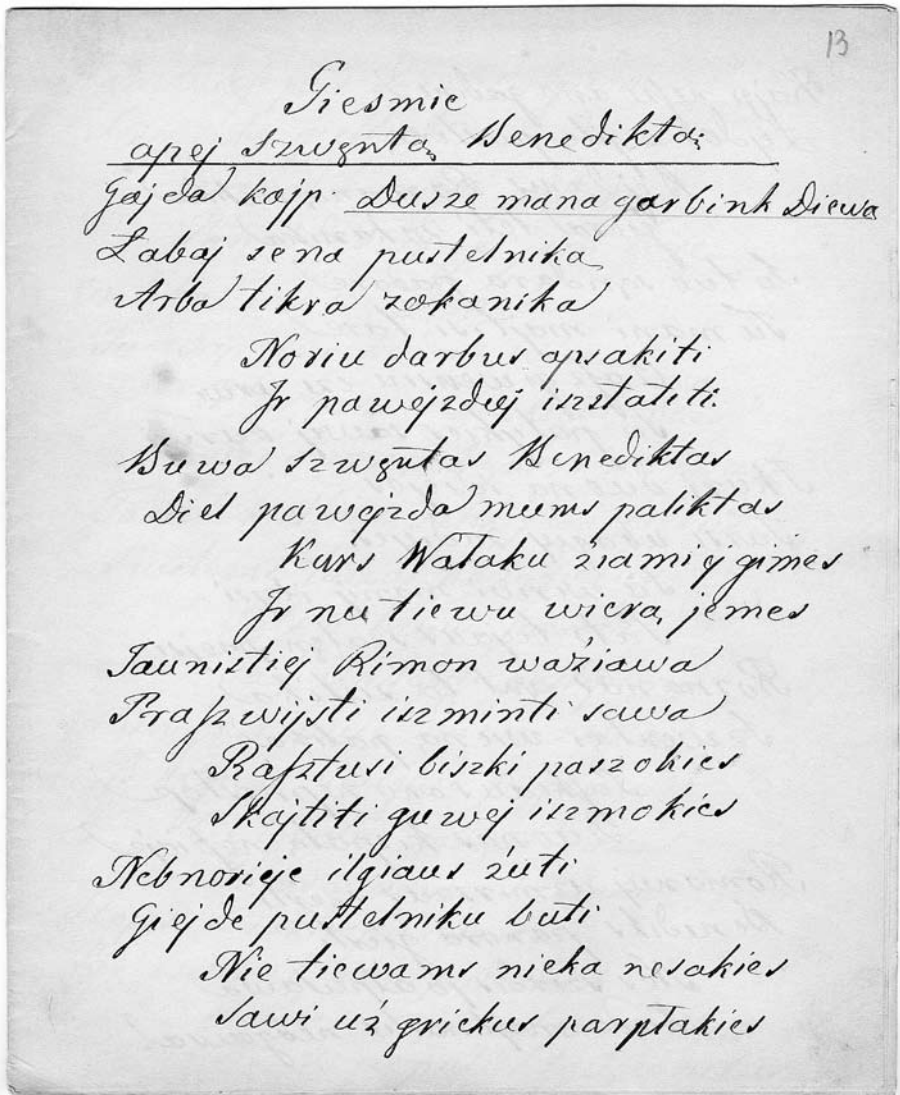 13
Giesmie
apej Szwęntą Benediktą
Gajda kajp. Dusze mana garbink Diewa
Łabaj sena pustelnika
Arba tikra zokanika
Noriu darbus apsakiti
Ir pawejzdiej isztatiti.
Buwa Szwęntas Benediktas
Diel pawejzda mums paliktas
Kurs Wałaku ziamiej gimes
Ir nu tiewu wierą jemes
Jaunistiej Rimon waźiawa
Praſzwijsti iszminti sawa
Raſztusi biszki paszokies
Skajtiti guwej iszmokies
Nebnorieje ilgiaus źuti
Giejde pustelniku buti
Nie tiewams nieka nesakies
Sawi uź griekus parpłakies